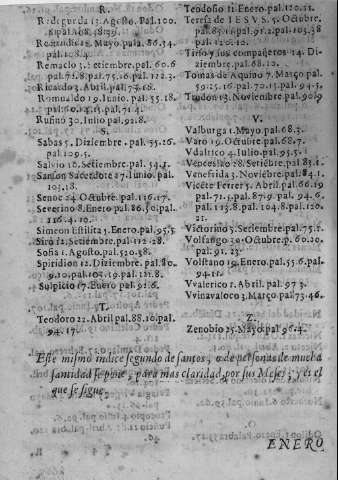 R.
Radegunda 13. Agosto. Pal. 100.
Romarico 15. Mayo. pala. 86.34.
pal. 108.8.
Remaclo 3. Setiembre. pal. 60.6
pal. 71.8. pal. 75.16. pal. 112.3.
Ricardo 3. Abril. pal. 73.18.
Romualdo 19. Iunio. pal. 55.18.
Rufino 30. Iulio pal. 92.8.
S.
Sabas 5. Diziembre. pal. 55.26.
pal. 109.5.
Salvio 10. Setiembre. pal. 54.1.
Sanson Sacerdote 27. Iunio. pal.
103.18.
Senoc 24. Octubre. pal. 116.17.
Severino 8. Enero pal. 86.60. pal
116.4.10.
Simeon Estilita 5. Enero. pal. 95.5.
Siro 12. Setiembre. pal. 112.28.
Sofia 1. Agosto. pal. 530.38.
Spiridion 12. Diziembre. pal. 80.
9.10. pal. 103.19. pal. 121.8.
Sulpicio 17. Enero pal. 91.6.
T.
Teodoro 22. Abril. pal. 88.10. pal.
94.17.
Teodosio 11. Enero. pal. 120.11.
Teresa de IESVS 5. Octubre.
pal. 85.14. pal. 91.2. pal. 103.38
pal. 120.10.
Tirso y sus compañeros 14. Di-
ziembre. pal. 68.10.
Tomas de Aquino 7. Março pal.
59.25.16. pal. 70.13. pal. 94.5.
Tudon 13. Noviembre. pal. 90.9.
V.
Valburga 1. Mayo. pal. 68.3.
Varo 19. Octubre. pal. 68.7.
Vdalrico 4. Iulio. pal. 95.5.
Venceslao 28. Setiẽbre. pal. 83.1.
Venefrida 3. Noviẽbre. pal. 84.1.
Vicẽte Ferrer 5. Abril. pal. 66.19
pal. 71.5. pal. 87.9. pal. 94.6.
pal. 113.8. pal. 104.8. pal. 120.
21.
Victorino 5. Setiembre. pal. 75.1.
Volfango 30. Octubre. p. 60.20.
pal. 91.23.
Volstano 19. Enero. pal. 55.6. pal.
94.11.
VValerico 1. Abril. pal. 97 3.
VVinavaloco 3. Março pal. 73.46.
Z.
Zenobio 25. Mayo. pal. 96.4.
Este mismo indice segundo de santos, o de personas de mucha
santidad se pone, para mas claridad, por sus Meses; y es el
que se sigue.
ENERO